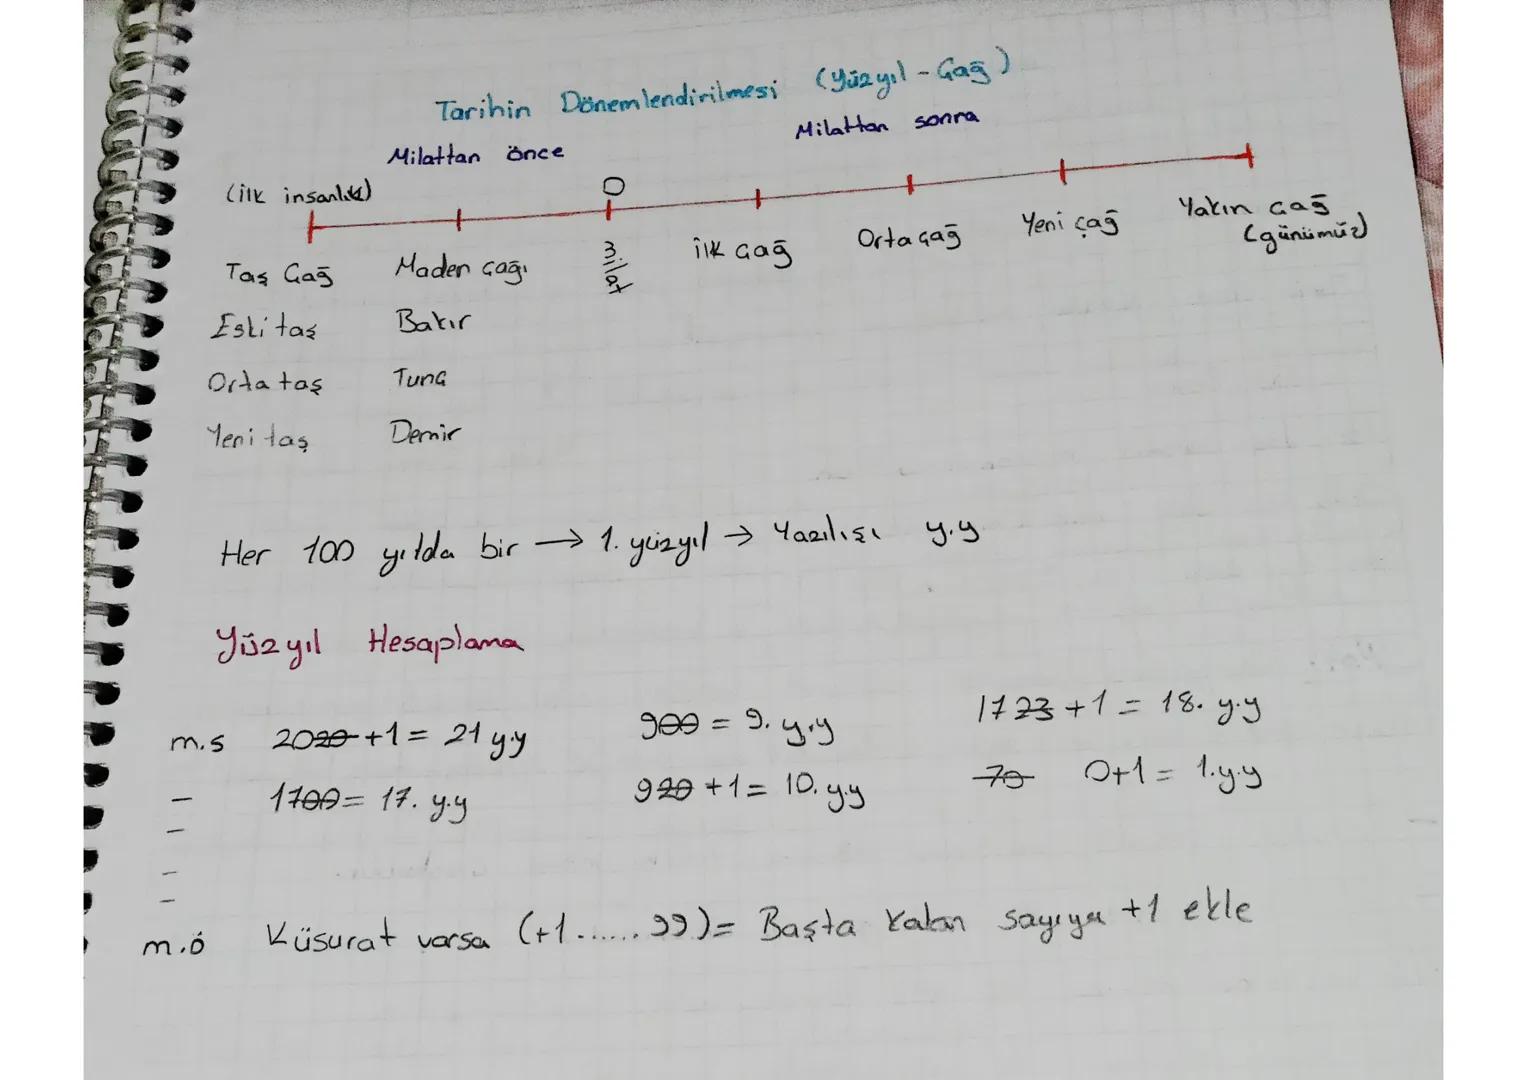 Tarihin Dönemlendirilmesi (Yüzyıl - Çağ)
Milattan önce Milattan sonra
(ilk insanlık) 0
Taş Çağ Maden çağı İlk Çağ Orta çağ Yeni çağ Yakın çağ
(günümüz)
Eski taş Bakır
Orta taş Tunç
Yeni taş Demir
Her 100 yılda bir → 1. yüzyıl → Yazılışı y.y
Yüzyıl Hesaplama
m.s 2020 +1 = 21 y.y 900 = 9. y.y 1723 +1 = 18. y.y
1700 = 17. y.y 920 +1 = 10. y.y 70 0+1 = 1.y.y
m.ö Küsurat varsa (+1......99) = Başta kalan sayıya +1 ekle